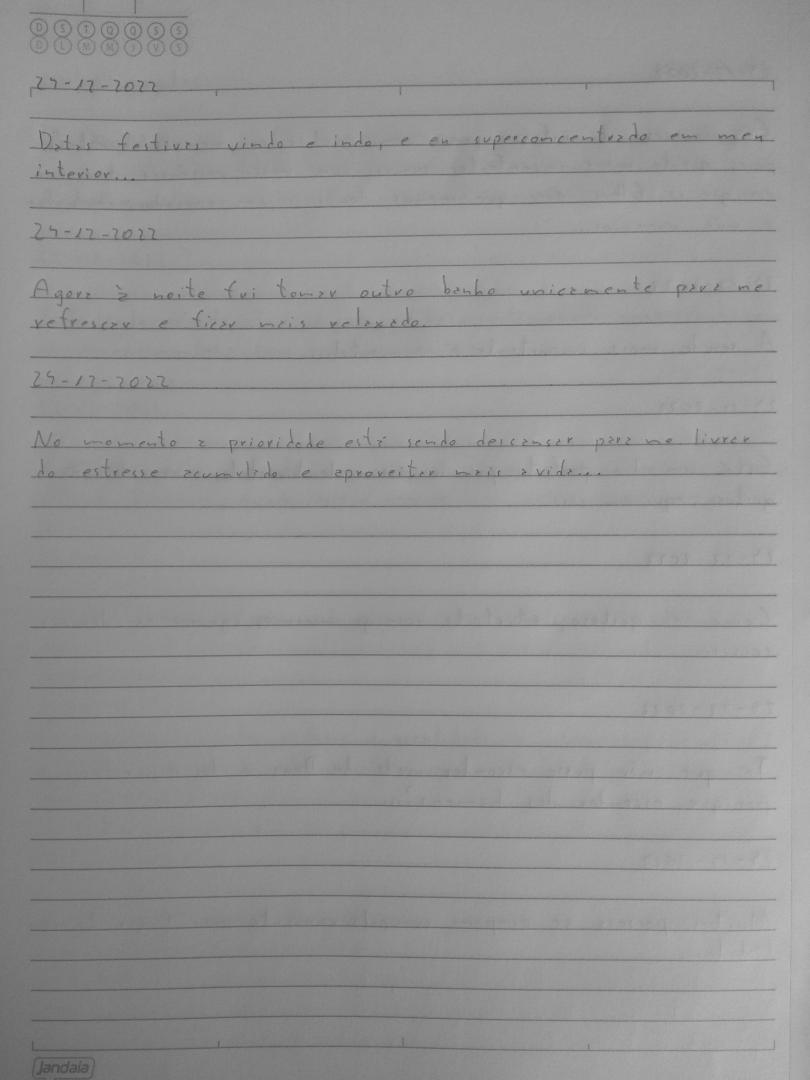 D S T Q Q S S
D L M M J V S
29-12-2022
Datas festivas vindo e indo, e eu superconcentrado em meu
interior...
29-12-2022
Agora à noite fui tomar outro banho unicamente para me
refrescar e ficar mais relaxado.
29-12-2022
No momento a prioridade está sendo descansar para me livrar
do estresse acumulado e aproveitar mais a vida...
Jandaia